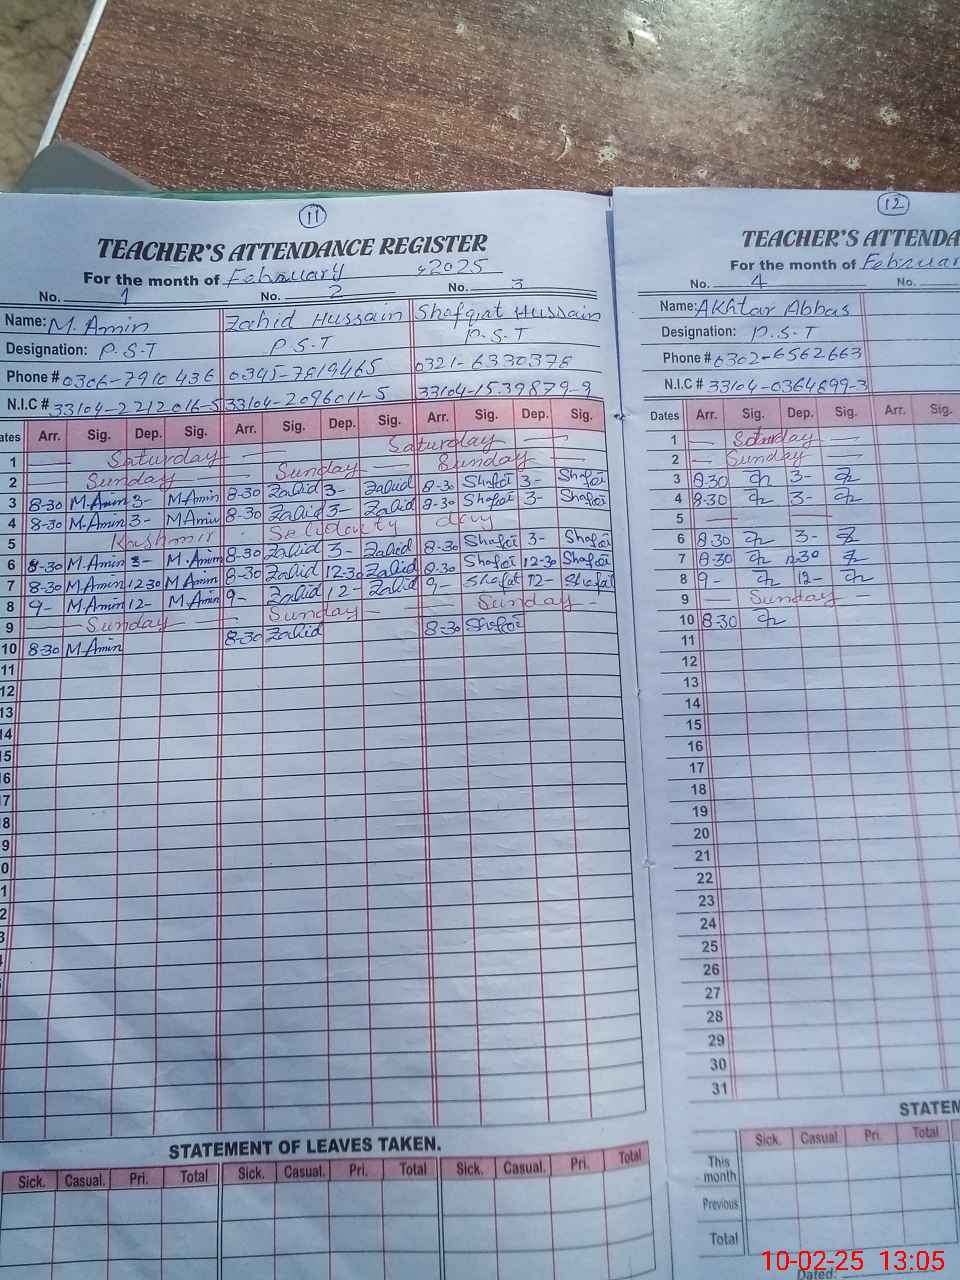 11
TEACHER'S ATTENDANCE REGISTER
For the month of February 2025
No. 1 No. 2 No. 3
Name: M. Amin Zahid Hussain Shafqat Hussain
Designation: P.S.T P.S.T P.S.T
Phone # 0306-7910436 0345-7819465 0321-6330376
N.I.C # 33104-2212016-5 33104-2096011-5 33104-1539879-9
Dates Arr. Sig. Dep. Sig. Arr. Sig. Dep. Sig. Arr. Sig. Dep. Sig.
1 Saturday Saturday
2 Sunday Sunday Sunday
3 8-30 M.Amin 3- M.Amin 8-30 Zahid 3- Zahid 8-30 Shafqat 3- Shafqat
4 8-30 M.Amin 3- MAmin 8-30 Zahid 3- Zahid 8-30 Shafqat 3- Shafqat
5 Kashmir Solidarity day
6 8-30 M.Amin 3- M.Amin 8-30 Zahid 3- Zahid 8-30 Shafqat 3- Shafqat
7 8-30 M.Amin 12-30 M.Amin 8-30 Zahid 12-30 Zahid 8-30 Shafqat 12-30 Shafqat
8 9- M.Amin 12- M.Amin 9- Zahid 12- Zahid 9- Shafqat 12- Shafqat
9 Sunday Sunday Sunday
10 8-30 M.Amin 8-30 Zahid 8-30 Shafqat
11
12
13
14
15
16
17
18
19
STATEMENT OF LEAVES TAKEN.
Sick. Casual. Pri. Total Sick. Casual. Pri. Total Sick. Casual. Pri. Total
12
TEACHER'S ATTENDA
For the month of Februar
No. 4 No.
Name: Akhtar Abbas
Designation: P.S.T
Phone # 0302-6562663
N.I.C # 33104-0364899-3
Dates Arr. Sig. Dep. Sig. Arr. Sig.
1 Saturday
2 Sunday
3 8-30 3-
4 8-30 3-
5
6 8-30 3-
7 8-30 12-30
8 9- 12-
9 Sunday
10 8-30
11
12
13
14
15
16
17
18
19
20
21
22
23
24
25
26
27
28
29
30
31
STATEM
Sick. Casual. Pri. Total
This month
Previous
Total
Dated:
10-02-25 13:05